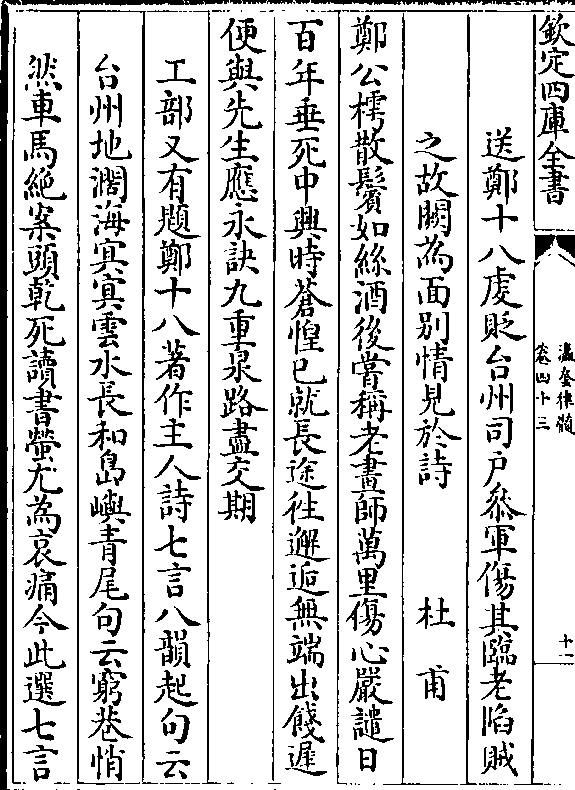 欽定四庫全書
瀛奎律髓
卷四十三
十一
送鄭十八虔貶台州司户叅軍傷其臨老陷賊
之故闕為面别情見於詩 杜甫
鄭公樗散鬢如絲酒後嘗稱老畫師萬里傷心嚴譴日
百年垂死中興時蒼惶已就長途往邂逅無端出餞遲
便與先生應永訣九重泉路盡交期
工部又有題鄭十八著作主人詩七言八韻起句云
台州地濶海冥冥雲水長和島嶼青尾句云窮巷悄
然車馬絶案頭乾死讀書螢尤為哀痛今此選七言